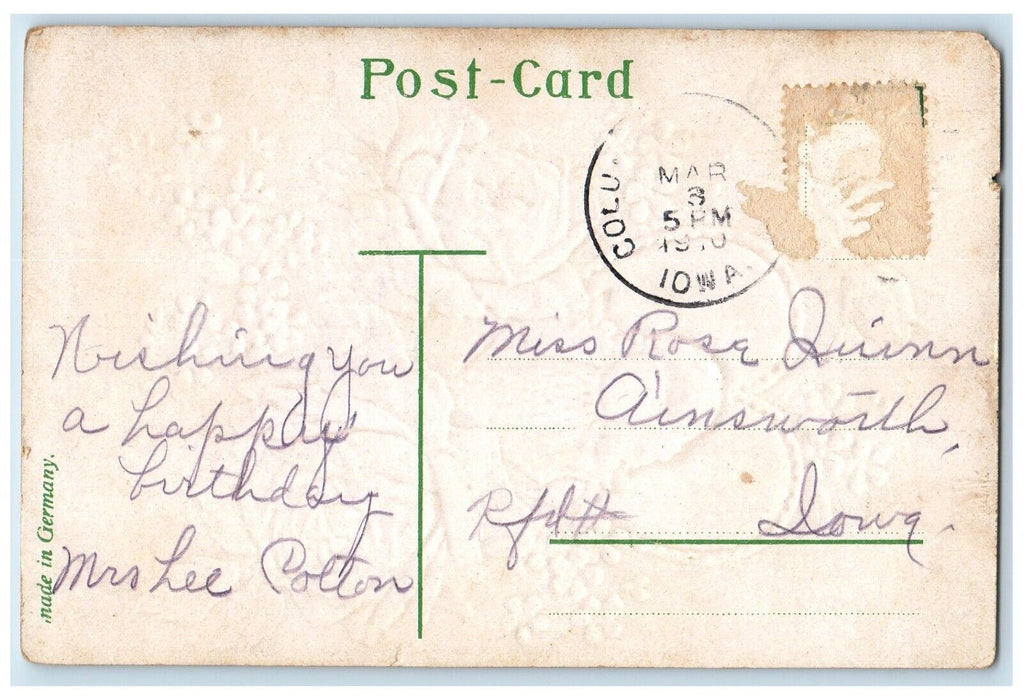 Post-Card
COLU.
MAR
3
5 PM
1910
IOWA.
Wishing you
a happy
birthday
Mrs Lee Colton
made in Germany.
Miss Rosa Quinn
Ainsworth,
Rfd#
Iowa.